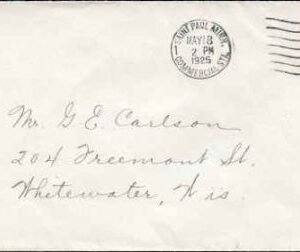 SAINT PAUL, MINN.
1
MAY 18
2 PM
1925
COMMERCIAL STA.
Mr. G E. Carlson
204 Freemont St.
Whitewater, Wis.